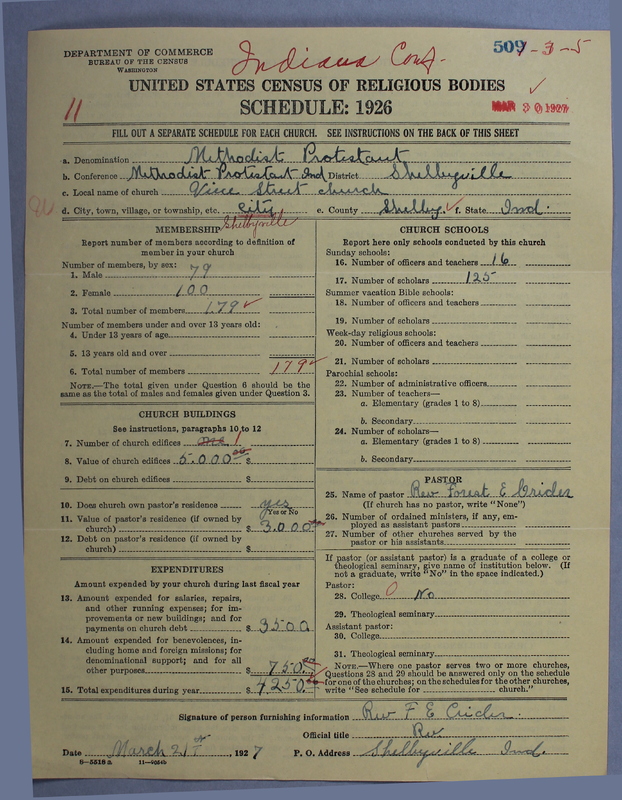 DEPARTMENT OF COMMERCE
BUREAU OF THE CENSUS
WASHINGTON
Indiana Conf.
509-3-5
UNITED STATES CENSUS OF RELIGIOUS BODIES
SCHEDULE: 1926
11
MAR 30 1927
FILL OUT A SEPARATE SCHEDULE FOR EACH CHURCH. SEE INSTRUCTIONS ON THE BACK OF THIS SHEET
a. Denomination Methodist Protestant
b. Conference Methodist Protestant Ind District Shelbyville
c. Local name of church Vine Street church
d. City, town, village, or township, etc. City e. County Shelby f. State Ind.
Shelbyville
MEMBERSHIP
Report number of members according to definition of
member in your church
Number of members, by sex:
1. Male 79
2. Female 100
3. Total number of members 179
Number of members under and over 13 years old:
4. Under 13 years of age
5. 13 years old and over
6. Total number of members 179
NOTE.—The total given under Question 6 should be the
same as the total of males and females given under Question 3.
CHURCH BUILDINGS
See instructions, paragraphs 10 to 12
7. Number of church edifices one 1
8. Value of church edifices 5.000 00 $
9. Debt on church edifices $
10. Does church own pastor's residence yes
Yes or No
11. Value of pastor's residence (if owned by
church) $ 3.000
12. Debt on pastor's residence (if owned by
church) $
EXPENDITURES
Amount expended by your church during last fiscal year
13. Amount expended for salaries, repairs,
and other running expense; for im-
provements or new buildings; and for
payments on church debt $ 3500
14. Amount expended for benevolences, in-
cluding home and foreign missions; for
denominational support; and for all
other purposes $ 750.00
15. Total expenditures during year $ 4250.00
CHURCH SCHOOLS
Report here only schools conducted by this church
Sunday schools:
16. Number of officers and teachers 16
17. Number of scholars 125
Summer vacation Bible schools:
18. Number of officers and teachers
19. Number of scholars
Week-day religious schools:
20. Number of officers and teachers
21. Number of scholars
Parochial schools:
22. Number of administrative officers
23. Number of teachers—
a. Elementary (grades 1 to 8)
b. Secondary
24. Number of scholars—
a. Elementary (grades 1 to 8)
b. Secondary
PASTOR
25. Name of pastor Rev Forest E Crider
(If church has no pastor, write "None")
26. Number of ordained ministers, if any, em-
ployed as assistant pastors
27. Number of other churches served by the
pastor or his assistants
If pastor (or assistant pastor) is a graduate of a college or
theological seminary, give name of institution below. (If
not a graduate, write "No" in the space indicated.)
Pastor:
28. College 0 No
29. Theological seminary
Assistant pastor:
30. College
31. Theological seminary
NOTE.—Where one pastor serves two or more churches,
Questions 28 and 29 should be answered only on the schedule
for one of the churches; on the schedules for the other churches,
write "See schedule for church."
Signature of person furnishing information Rev F E Crider
Official title Rev
Date March 21st, 1927 P. O. Address Shelbyville Ind.